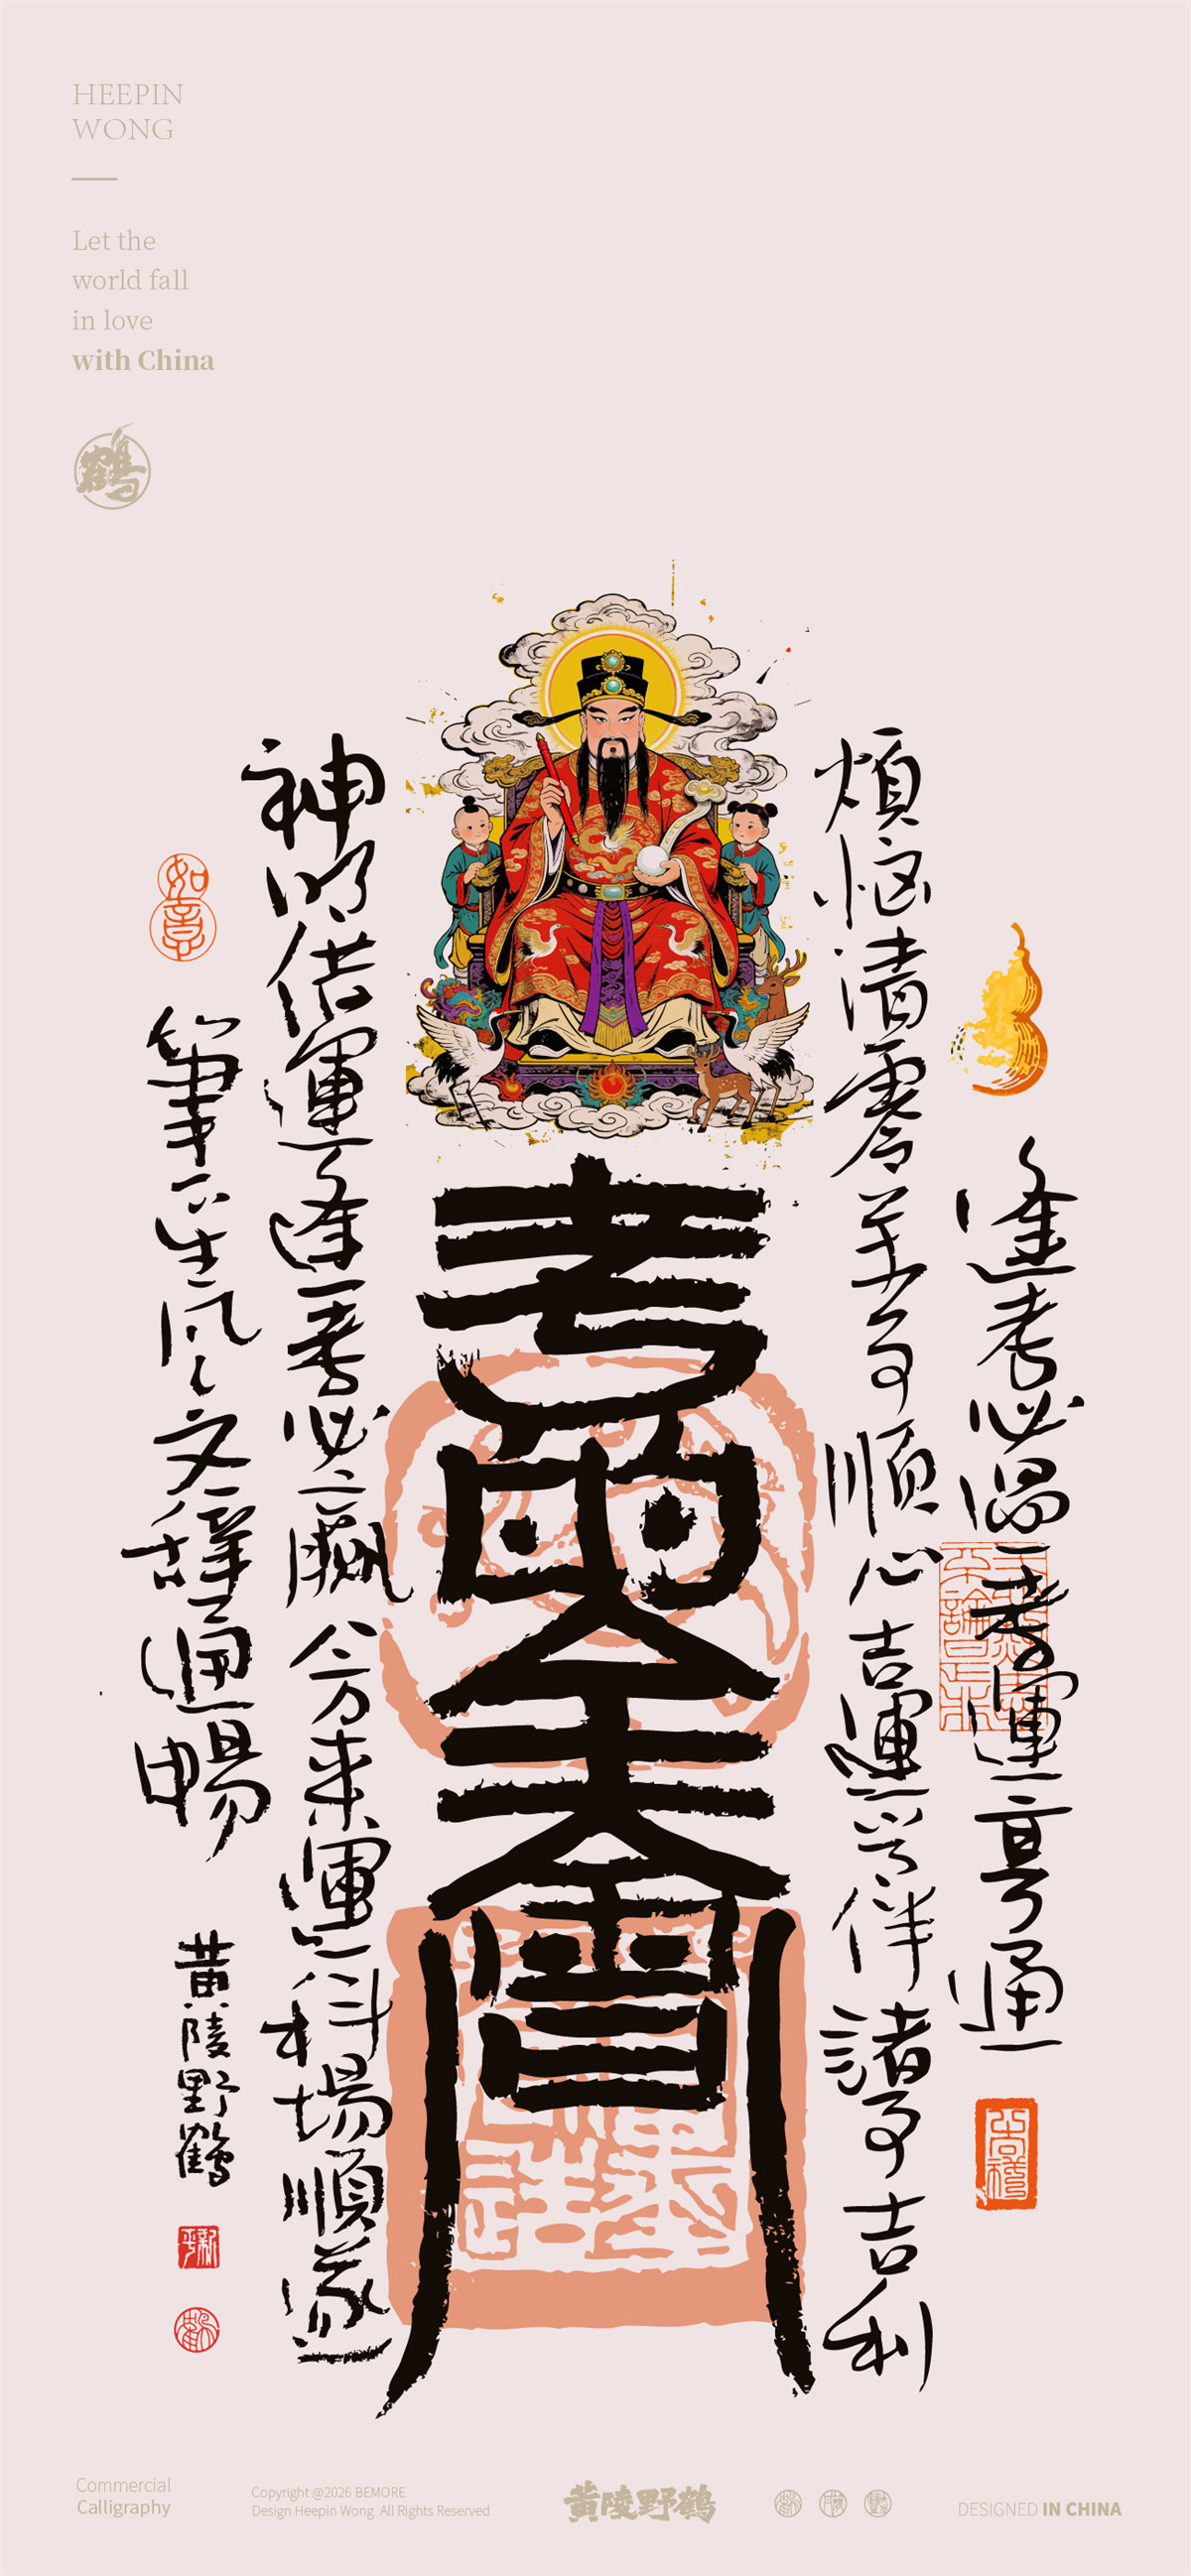 HEEPIN
WONG
Let the
world fall
in love
with China
鶴
逢考必過考運亨通
煩惱清零萬事順心吉運常伴諸事吉利
考的全會
神明佑運逢考必贏八方來運科場順遂
如意
筆下生風文辞通暢
黄陵野鶴
Commercial
Calligraphy
Copyright @2026 BEMORE
Design Heepin Wong All Rights Reserved
黄陵野鶴
DESIGNED IN CHINA